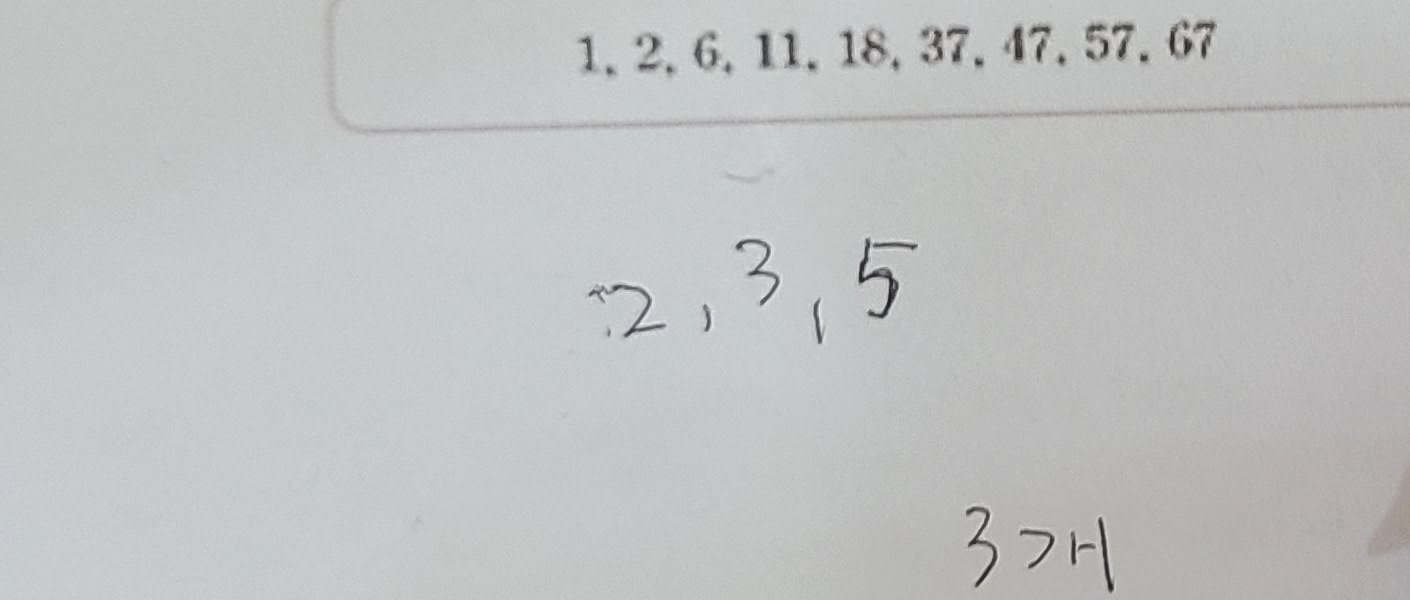 1, 2, 6, 11, 18, 37, 47, 57, 67
2, 3, 5
3개